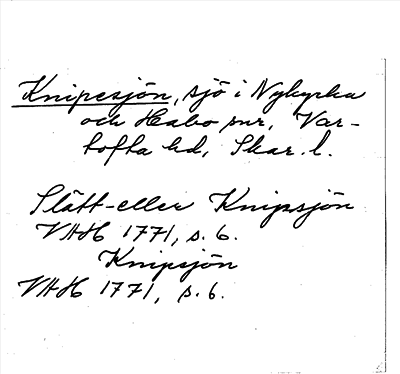 Knipesjön, sjö i Nykyrka
och Habo snr, Var-
tofta hd, Skar. l.
Slätt- eller Knipsjön
VHH 1771, s. 6.
Knipsjön
VHH 1771, s. 6.